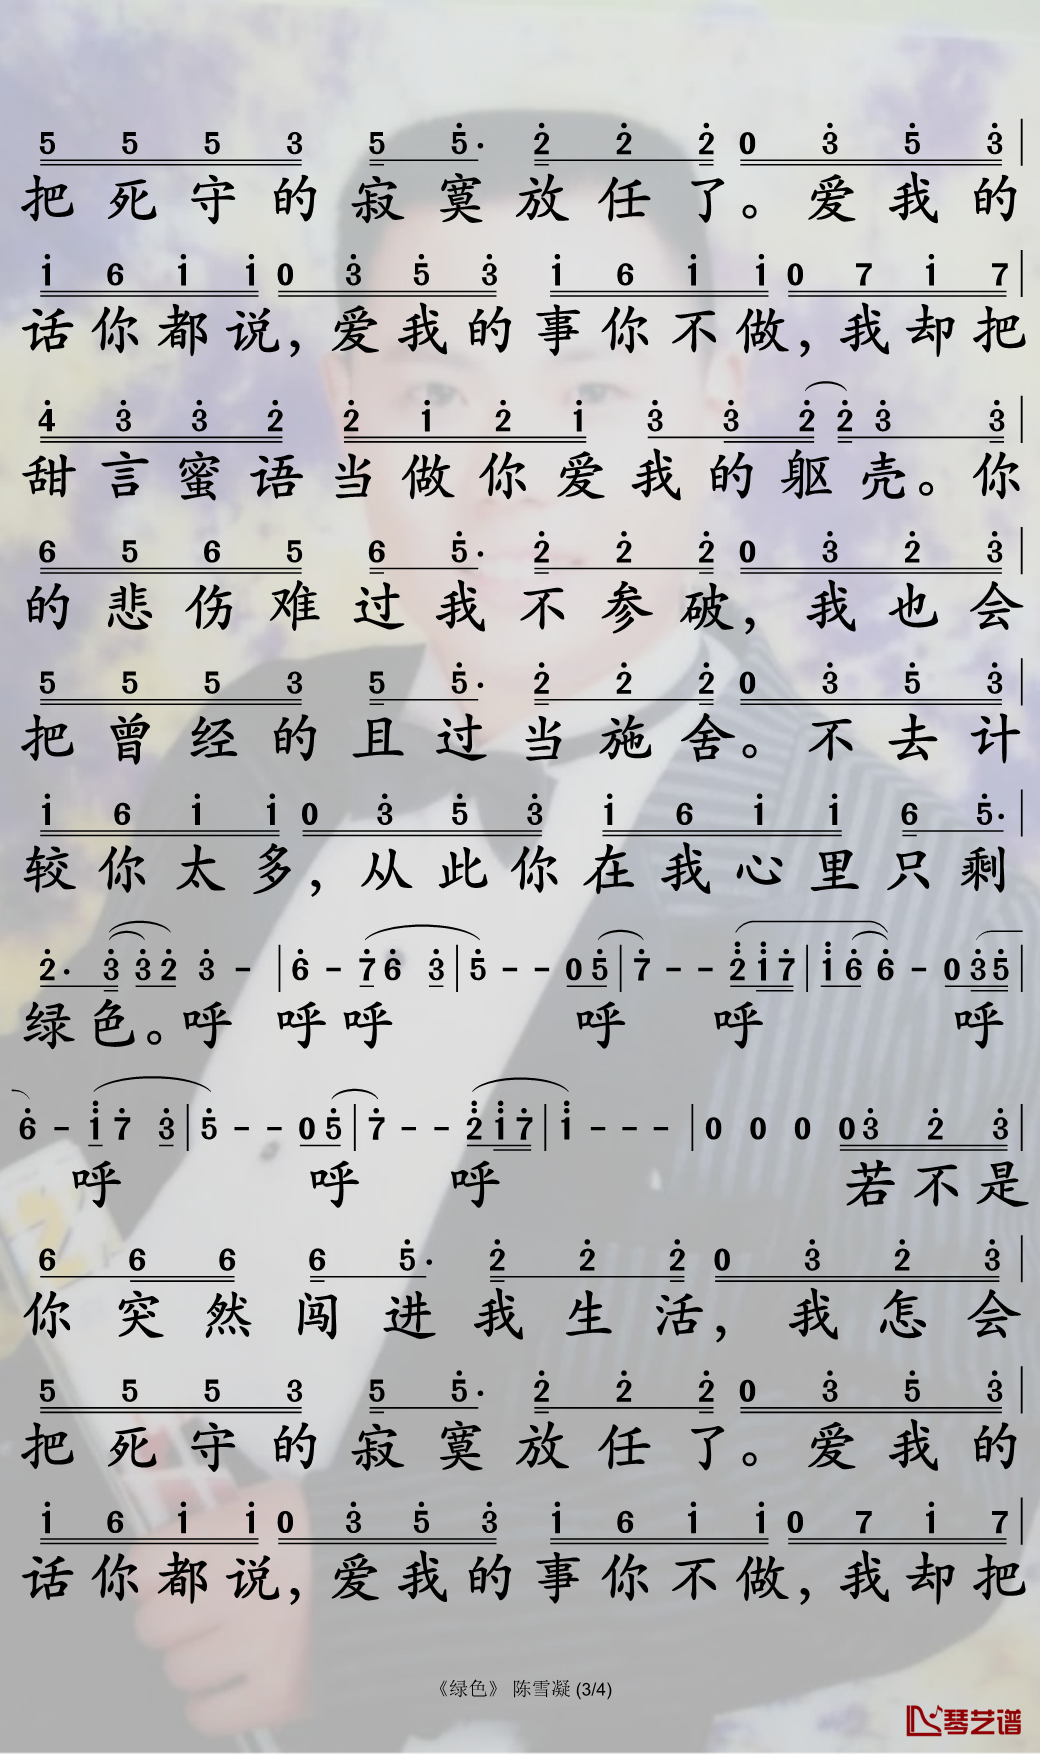 5 5 5 3 5 5· 2 2 2 0 3 5 3
把死守的寂寞放任了。爱我的
1 6 1 1 0 3 5 3 1 6 1 1 0 7 1 7
话你都说，爱我的事你不做，我却把
4 3 3 2 2 1 2 1 3 3 2 2 3 3
甜言蜜语当做你爱我的躯壳。你
6 5 6 5 6 5· 2 2 2 0 3 2 3
的悲伤难过我不参破，我也会
5 5 5 3 5 5· 2 2 2 0 3 5 3
把曾经的且过当施舍。不去计
1 6 1 1 0 3 5 3 1 6 1 1 6 5·
较你太多，从此你在我心里只剩
2· 3 3 2 3 - | 6 - 7 6 3 | 5 - - 0 5 | 7 - - 2 1 7 | 1 6 6 - 0 3 5
绿色。呼 呼呼 呼 呼 呼
6 - 1 7 3 | 5 - - 0 5 | 7 - - 2 1 7 | 1 - - - | 0 0 0 0 3 2 3
呼 呼 呼 若不是
6 6 6 6 5· 2 2 2 0 3 2 3
你突然闯进我生活，我怎会
5 5 5 3 5 5· 2 2 2 0 3 5 3
把死守的寂寞放任了。爱我的
1 6 1 1 0 3 5 3 1 6 1 1 0 7 1 7
话你都说，爱我的事你不做，我却把
《绿色》 陈雪凝 (3/4)
琴艺谱